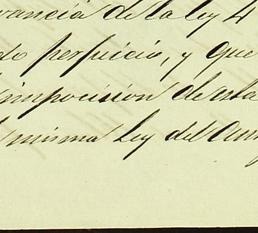 vancia de la ley 4
do perjuicio, y que
imposicion de esta
misma Ley del